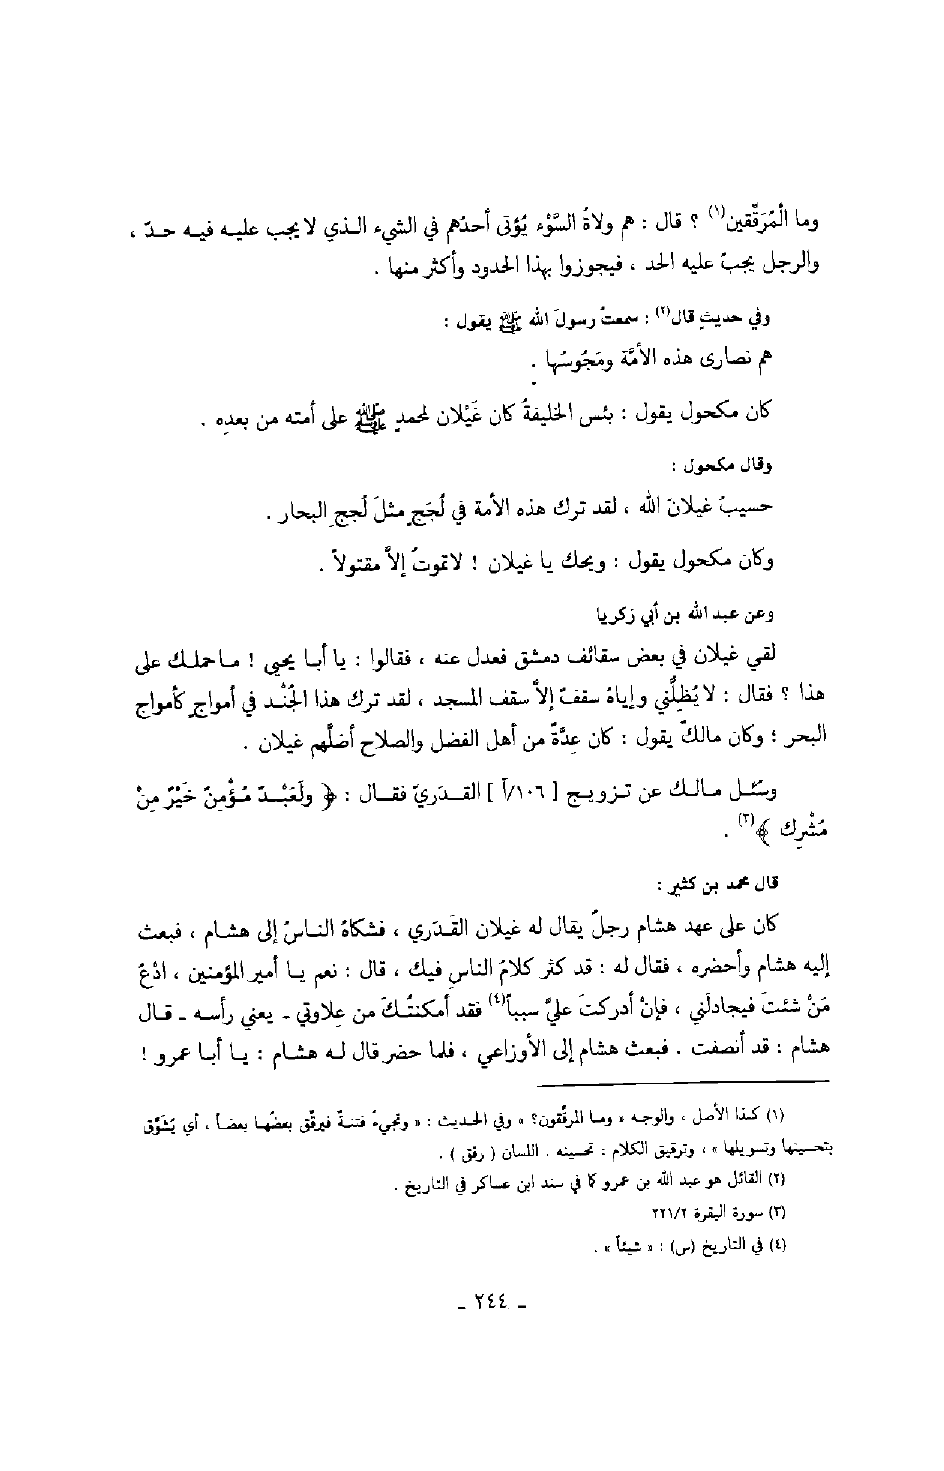 وما الْمُرَقَّقين(١) ؟ قال : هم ولاةُ السَّوْء يُؤتى أحدُهم في الشيء الذي لا يجب عليه فيه حدّ ،
والرجل يجبُ عليه الحد ، فيجوزوا بهذا الحدود وأكثر منها .
وفي حديثٍ قال(٢) : سمعتُ رسولَ الله ﷺ يقول :
هم نصارى هذه الأمَّة ومَجُوسُها .
كان مكحول يقول : بئس الخليفةُ كان غَيْلان لمحمدٍ ﷺ على أمته من بعدِه .
وقال مكحول :
حسيبُ غيلانَ الله ، لقد ترك هذه الأمة في لُجَجٍ مثلَ لُججِ البحار .
وكان مكحول يقول : ويحك يا غيلان ! لا تموتُ إلاَّ مقتولاً .
وعن عبد الله بن أبي زكريا
لقي غيلان في بعض سقائف دمشق فعدل عنه ، فقالوا : يا أبا يحيى ! ما حملك على
هذا ؟ فقال : لا يُظِلُّني وإياهُ سقفٌ إلاّ سقف المسجد ، لقد ترك هذا الجُنْد في أمواجٍ كأمواج
البحر ؛ وكان مالكٌ يقول : كان عِدَّةٌ من أهل الفضل والصلاح أضلَّهم غيلان .
وسُئل مالك عن تزويج [ ١٠٦/أ ] القدَريّ فقال : ﴿ ولَعَبْدٌ مُؤْمِنٌ خَيْرٌ مِنْ
مُشْرِك ﴾(٣) .
قال محمد بن كثير :
كان على عهد هشام رجلٌ يقال له غيلان القَدَري ، فشكاهُ الناسُ إلى هشام ، فبعث
إليه هشام وأحضره ، فقال له : قد كثر كلامُ الناسِ فيك ، قال : نعم يا أمير المؤمنين ، ادْعُ
مَنْ شئتَ فيجادلَني ، فإنْ أدركتَ عليَّ سبباً(٤) فقد أمكنتُكَ من عِلاوتي ـ يعني رأسه ـ قال
هشام : قد أنصفت . فبعث هشام إلى الأوزاعي ، فلما حضر قال له هشام : يا أبا عمرو !
(١) كذا الأصل ، والوجه « وما المرقِّقون؟ » وفي الحديث : « وتجيءُ فتنةٌ فيرقِّق بعضُها بعضاً ، أي يُشَوِّق
بتحسينها وتسويلها » ، وترقيق الكلام : تحسينه . اللسان ( رقق ) .
(٢) القائل هو عبد الله بن عمرو كما في سند ابن عساكر في التاريخ .
(٣) سورة البقرة ٢٢١/٢
(٤) في التاريخ (س) : « شيئاً » .
ـ ٢٤٤ ـ